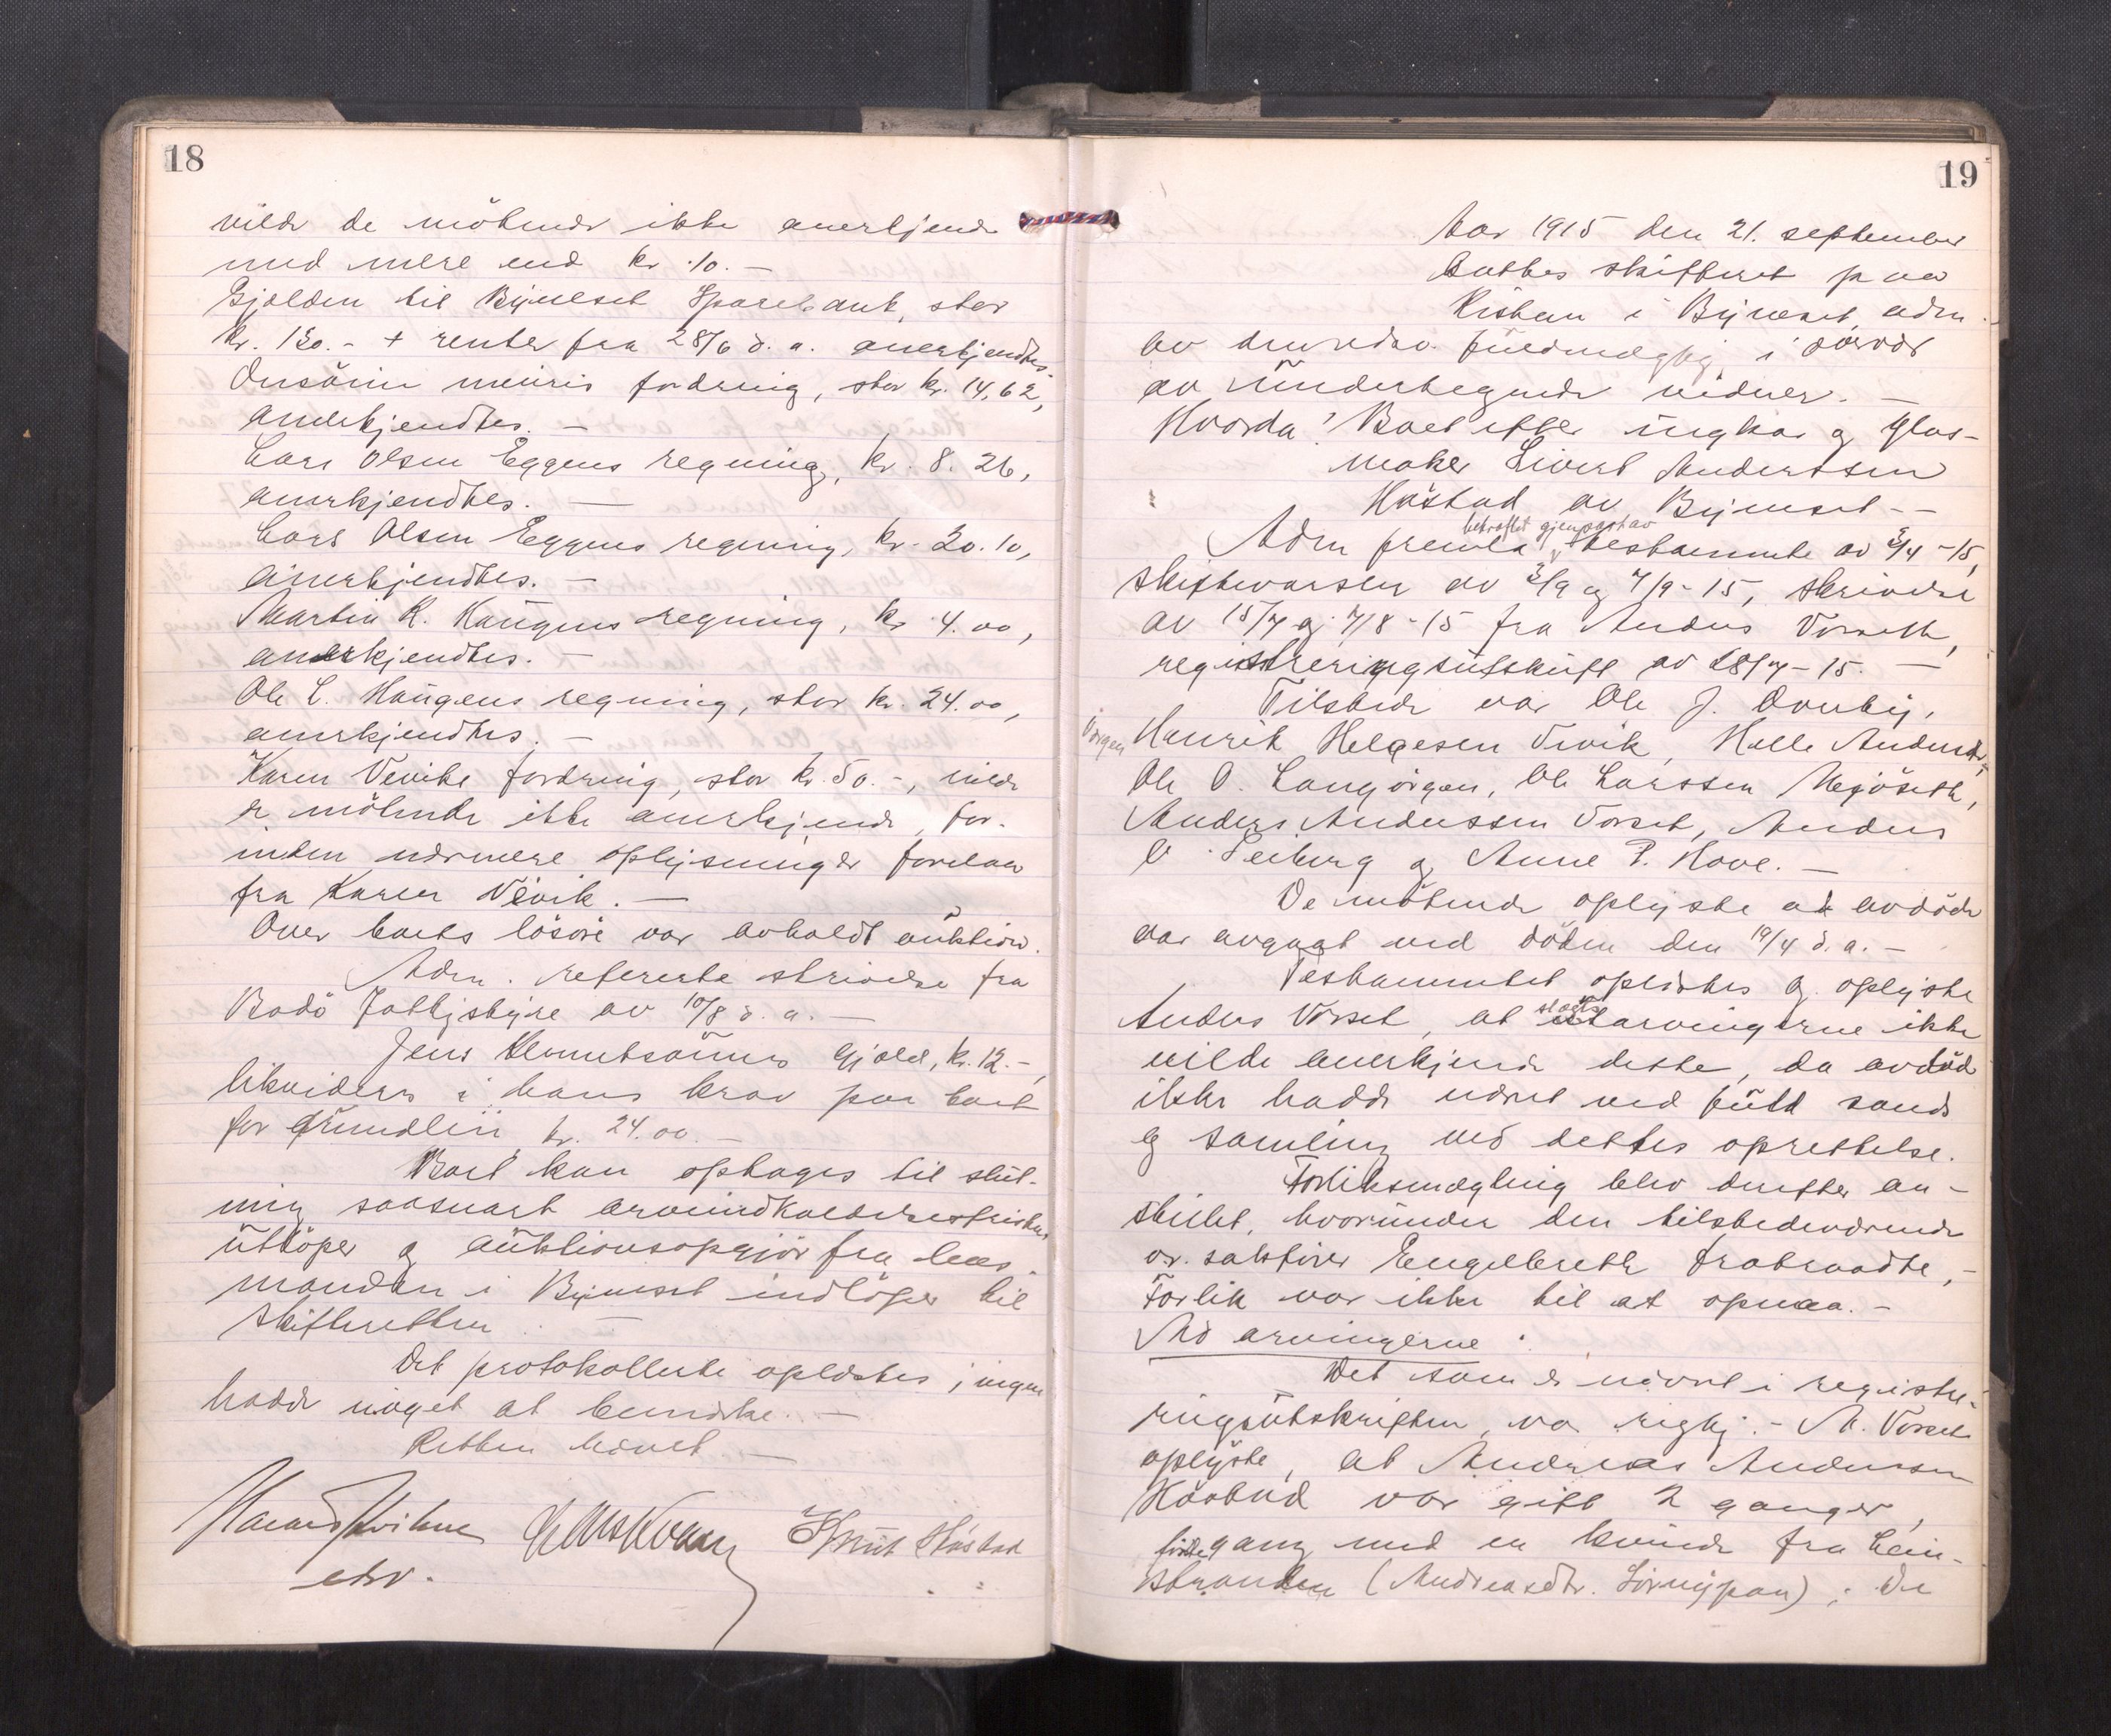 18
vilde de møtende ikke anerkjende
med mere end kr. 10.-
Gjælden til Bynesset Sparebank, stor
kr. 130.- + renter fra 28/6 d. a. anerkjendtes.
Ousöien meieris fordring, stor kr. 14,62,
anerkjendtes. -
Lars Olsen Eggens regning, kr. 8.26,
anerkjendtes. -
Lars Olsen Eggens regning, kr. 20.10,
anerkjendtes. -
Martin K. Haugens regning, kr. 4.00,
anerkjendtes. -
Ole L. Haugens regning, stor kr. 24.00,
anerkjendtes. -
Karen Veviks fordring, stor kr. 50.-, vilde
de møtende ikke anerkjende, for-
inden nærmere oplysninger forelaa
fra Karen Vevik. -
Over boets løsøre var avholdt auktion.
Adm. refererte skrivelse fra
Bodö Fattigstyre av 10/8 d. a. -
Jens Klemetsauns gjæld, kr. 12.-,
likvideres i hans krav paa boet
for grundleie kr. 24.00. -
Boet kan optages til slut-
ning saasnart arveindkaldelsesfristen
utløper og auktionsopgjør fra lens-
manden i Bynesset indløper til
skifteretten. -
Det protokollerte oplæstes; ingen
hadde noget at bemerke. -
Retten hævet. -
Knut Håstad
19
Aar 1915 den 21. september
sattes skifteret paa
Ristan i Bynesset, adm.
av edsv. fuldmægtig i nærvær
av undertegnede vidner. -
Hvorda: Boet efter ungkar og glas-
maker Sivert Anderssen
Håstad av Bynesset. -
bekræftet gjenpart av
Adm fremla testamente av 3/4 -15,
skiftevarsler av 3/9 og 7/9 - 15, skrivelse
av 15/7 og 7/8 -15 fra Anders Vorseth,
registreringsutskrift av 28/7 - 15. -
Tilstede var Ole J. Ovnby,
Henrik Helgesen Vevik, Halle Anderss.
Ole O. Langörgen, Ole Larssen Mejöseth,
Anders Anderssen Vorset, Anders
O. Seiberg og Anne P. Hove. -
De møtende oplyste at avdøde
var avgaat ved døden den 19/4 d. a. -
Testamentet oplæstes og oplyste
Anders Vorset, at slegtsarvingerne ikke
vilde anerkjende dette, da avdøde
ikke hadde været ved fuld sands
og samling ved dettes oprettelse.
Forliksmægling blev derefter an-
stillet, hvorunder den tilstedeværende
o.r. sakfører Engelbreth fratraadte, -
Forlik var ikke til at opnaa. -
Ad arvingerne:
Det som er nævnt i registre-
ringsutskriften, var rigtig. - A. Vorset
oplyste, at Andreas Anderssen
Håstad var gift 2 ganger,
første gang med en kvinde fra Lein-
stranden (Andreasdtr. Sörnypan); de